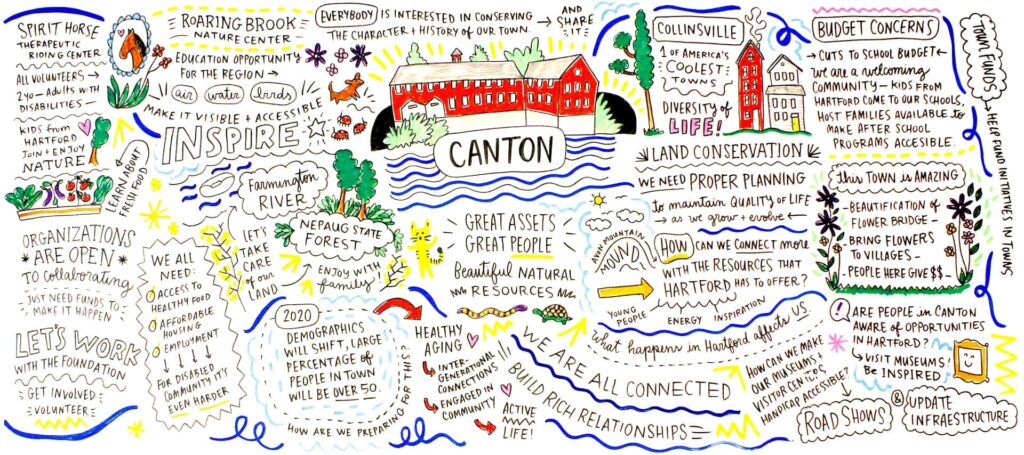 SPIRIT HORSE
THERAPEUTIC
RIDING CENTER
ALL VOLUNTEERS →
2yo – Adults WITH
DISABILITIES –
KIDS from
HARTFORD
JOIN + ENJOY
NATURE
LEARN ABOUT
FRESH FOOD
ORGANIZATIONS
ARE OPEN
TO Collaborating
JUST NEED FUNDS TO
MAKE IT HAPPEN
LET'S WORK
WITH THE FOUNDATION
GET INVOLVED
VOLUNTEER
ROARING BROOK
NATURE CENTER
EDUCATION OPPORTUNITY
FOR THE REGION →
air water birds
MAKE IT VISIBLE + ACCESSIBLE
INSPIRE
Farmington
RIVER
NEPAUG STATE
FOREST
ENJOY WITH
family
LET'S
TAKE
CARE
of our
LAND
WE ALL
NEED:
ACCESS TO
HEALTHY FOOD
AFFORDABLE
HOUSING
EMPLOYMENT
FOR DISABLED
COMMUNITY IT'S
EVEN HARDER
2020
DEMOGRAPHICS
WILL SHIFT, LARGE
PERCENTAGE of
PEOPLE IN TOWN
WILL BE OVER 50.
HOW ARE WE PREPARING FOR THIS?
EVERYBODY IS INTERESTED IN CONSERVING
THE CHARACTER + HISTORY OF OUR TOWN.
→ AND
SHARE
IT
CANTON
GREAT ASSETS
GREAT PEOPLE
Beautiful NATURAL
RESOURCES
HEALTHY
AGING
INTER-
GENERATIONAL
CONNECTIONS
ENGAGED IN
COMMUNITY
ACTIVE
LIFE!
WE ARE ALL CONNECTED
BUILD RICH RELATIONSHIPS
COLLINSVILLE
1 OF AMERICA'S
COOLEST
TOWNS
DIVERSITY of
LIFE!
LAND CONSERVATION
WE NEED PROPER PLANNING
to maintain QUALITY OF LIFE
→ as we grow + evolve ←
AVON MOUNTAIN
MOUND
YOUNG
PEOPLE
ENERGY
INSPIRATION
HOW CAN WE CONNECT more
WITH THE RESOURCES THAT
HARTFORD HAS TO OFFER?
what happens in Hartford affects US.
HOW CAN WE MAKE
OUR MUSEUMS +
VISITOR CENTERS
HANDICAP ACCESSIBLE?
ROAD SHOWS
&
UPDATE
INFRAESTRUCTURE
BUDGET CONCERNS
→ CUTS TO SCHOOL BUDGET ←
we are a welcoming
COMMUNITY – KIDS FROM
HARTFORD COME TO OUR SCHOOLS,
HOST FAMILIES AVAILABLE to
MAKE AFTER SCHOOL
PROGRAMS ACCESIBLE.
TOWN FUNDS → HELP FUND INITIATIVES IN TOWNS
this TOWN IS AMAZING
– BEAUTIFICATION OF
FLOWER BRIDGE –
– BRING FLOWERS
TO VILLAGES –
– PEOPLE HERE GIVE $$ –
! ARE PEOPLE in CANTON
AWARE OF OPPORTUNITIES
IN HARTFORD?
→ VISIT MUSEUMS!
Be INSPIRED